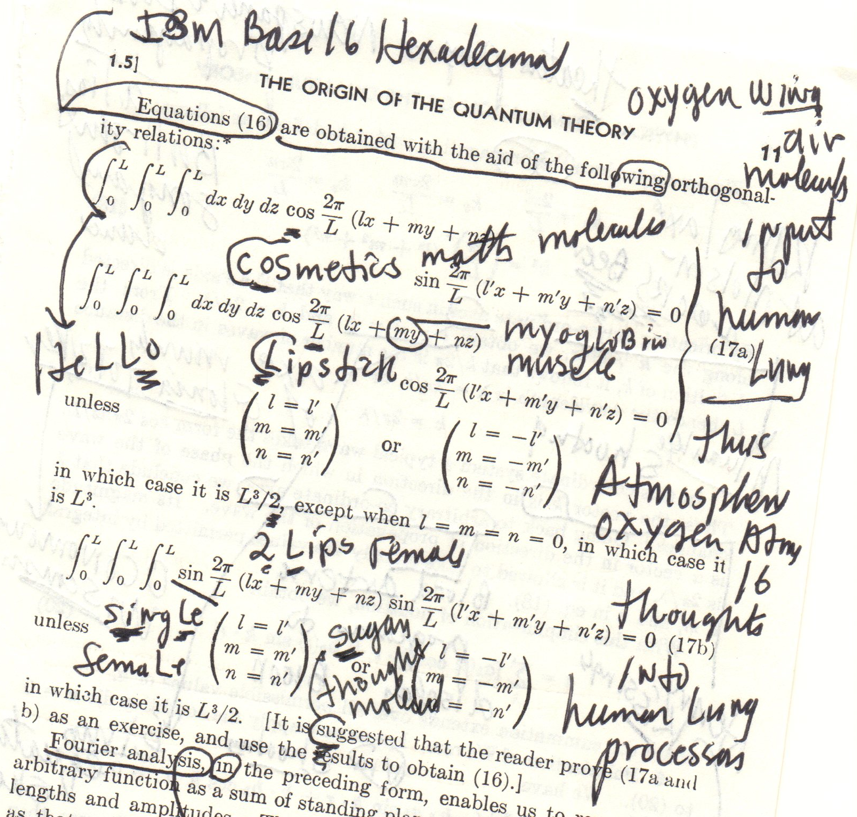 IBm Base 16 Hexadecimal
1.5]
THE ORIGIN OF THE QUANTUM THEORY
oxygen wing
air
molecules
Equations (16) are obtained with the aid of the following orthogonal-
ity relations:*
∫₀ᴸ ∫₀ᴸ ∫₀ᴸ dx dy dz cos 2π/L (lx + my + nz)
math molecules
input
to
human
Lung
cosmetics
sin 2π/L (l'x + m'y + n'z) = 0
∫₀ᴸ ∫₀ᴸ ∫₀ᴸ dx dy dz cos 2π/L (lx + my + nz)
myogloBin
muscle
(17a)
HeLLo
Lipstick
cos 2π/L (l'x + m'y + n'z) = 0
unless (l = l' m = m' n = n') or (l = −l' m = −m' n = −n')
thus
Atmosphere
oxygen Atm
16
thoughts
into
human Lung
processors
in which case it is L³/2, except when l = m = n = 0, in which case it
is L³.
2 Lips Female
∫₀ᴸ ∫₀ᴸ ∫₀ᴸ sin 2π/L (lx + my + nz) sin 2π/L (l'x + m'y + n'z) = 0 (17b)
single
female
sugar
thought
unless (l = l' m = m' n = n') or (l = −l' m = −m' n = −n')
in which case it is L³/2. [It is suggested that the reader prove (17a and
b) as an exercise, and use the results to obtain (16).]
Fourier analysis, in the preceding form, enables us to
arbitrary function as a sum of standing
lengths and amplitudes.